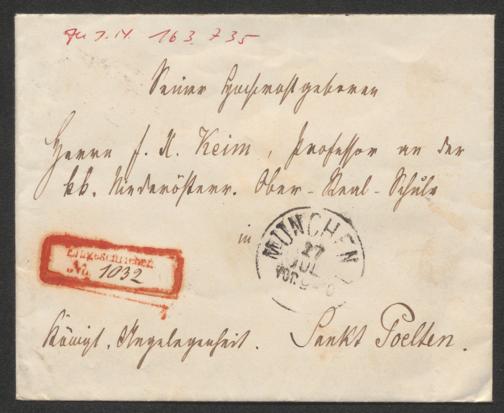 163. 735
Seiner Hochwohlgeboren
Herrn F. X. Keim, Professor an der
kk. Niederösterr. Ober-Real-Schule
in
MÜNCHEN
27
JUL
VOR. 9
Eingeschrieben.
No. 1032
Königl. Angelegenheit. Sankt Poelten.